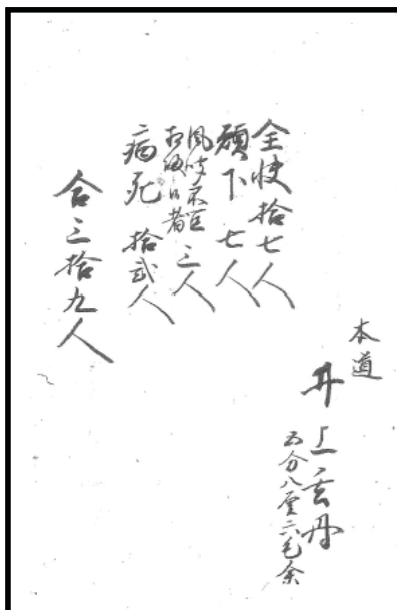 本道
井上玄丹
五分八厘六毛余
全快拾七人
願下七人
三人
病死拾弐人
合三拾九人